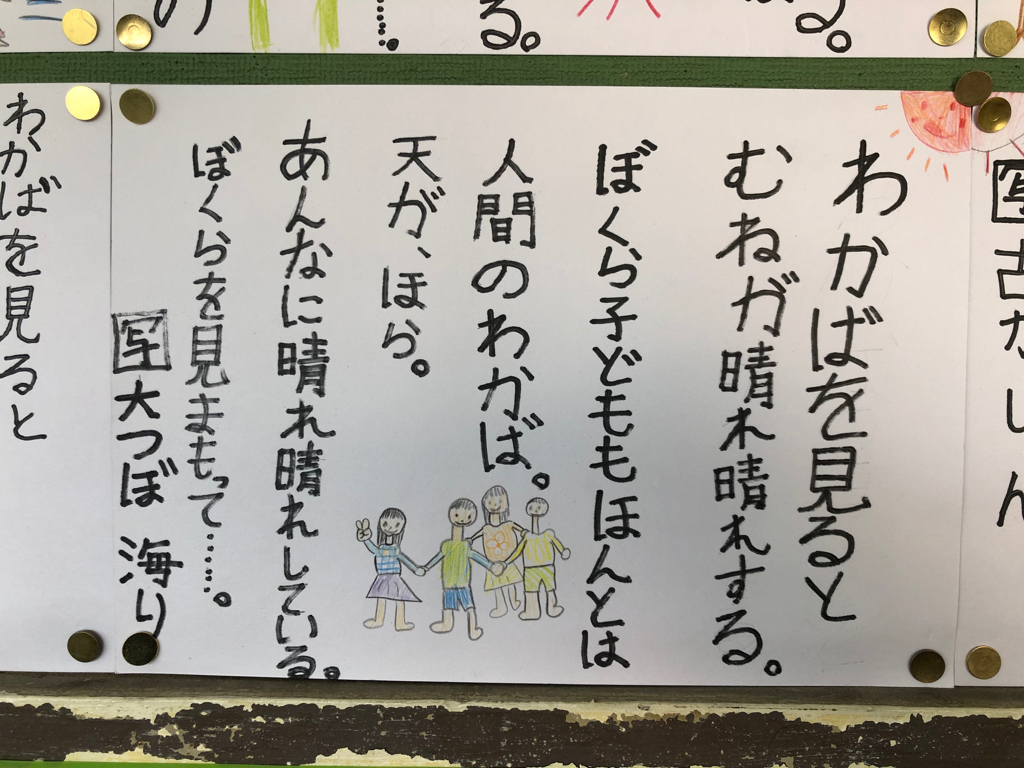 る。
る。
の
わかばを見ると
むねが晴れ晴れする。
ぼくら子どももほんとは
人間のわかば。
天が、ほら。
あんなに晴れ晴れしている。
ぼくらを見まもって……。
写 大つぼ 海り
わかばを見ると